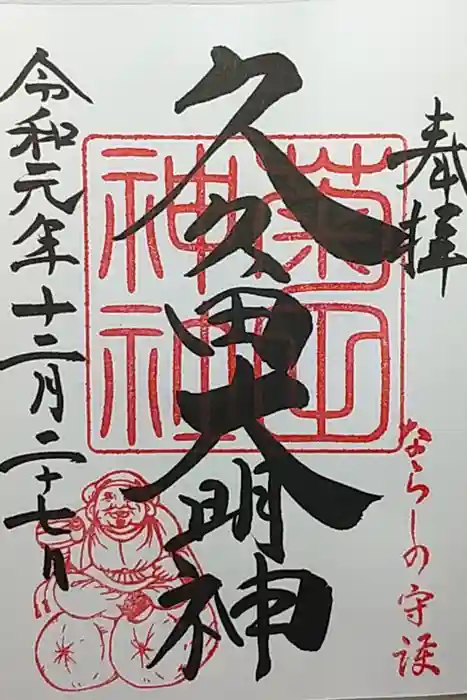 奉拝
ならしの守護
久久田大明神
菊田
神社
令和元年十二月二十七日